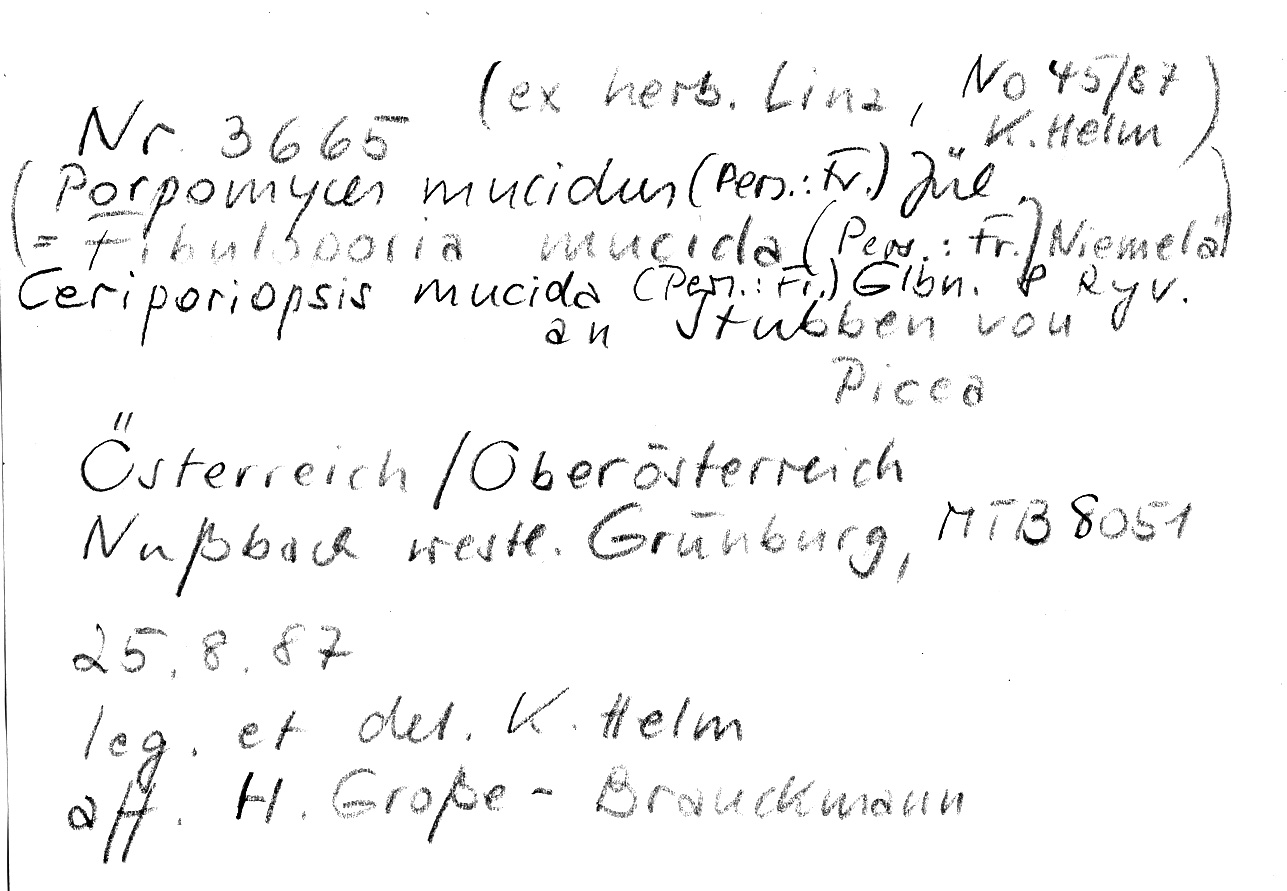 (ex herb. Linz, No 45/87
Nr. 3665 K. Helm)
(Porpomyces mucidus (Pers.: Fr.) Jül.
= Fibuloporia mucida (Pers.: Fr.) Niemelä)
Ceriporiopsis mucida (Pers.: Fr.) Glbn. & Ryv.
an Stubben von
Picea
Österreich/Oberösterreich
Nußbach westl. Grünburg, MTB 8051
25.8.87
leg. et det. K. Helm
aff. H. Große-Brauckmann